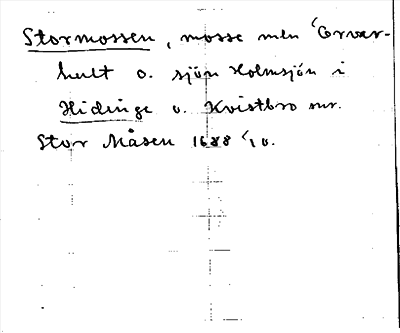 Stormossen, mosse mln Torvar-
hult o. sjön Holmsjön i
Hidinge o. Kvistbro snr.
Stor Måsen 1688 10.